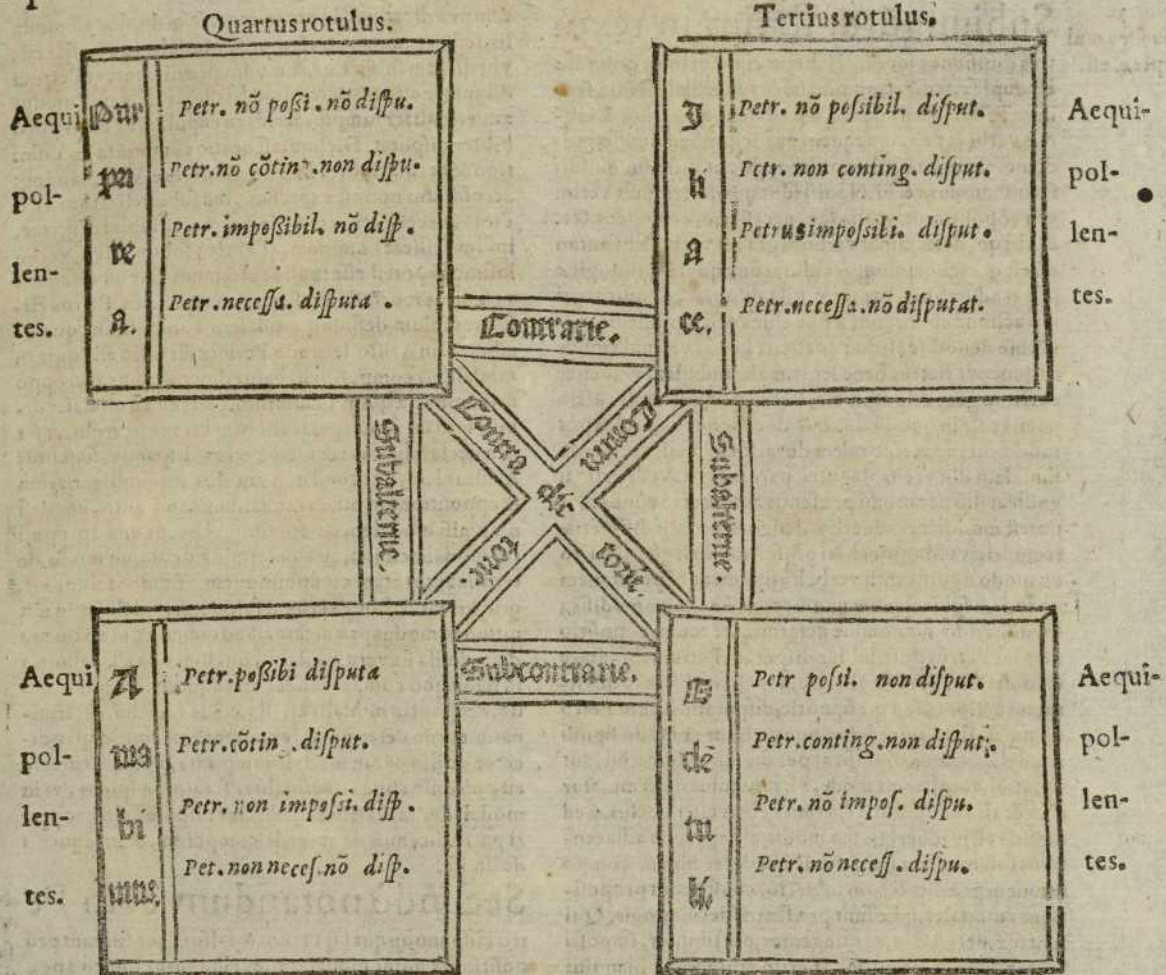 Quartus rotulus.
Tertius rotulus.
Aequi
pol-
len-
tes.
Pur
pu
re
a.
Petr. nõ poßi . nõ disspu.
Petr. nõ cõtin . non disspu.
Petr. impoßibil. nõ dissp.
Petr. necessa. dissputa .
J
li
a
ce.
Petr. nõ possibil. dissput.
Petr. non conting. dissput.
Petrus impossibi. dissput.
Petr. necessa. nõ disputat.
Aequi-
pol-
len-
tes.
Contrarie.
Subalterne.
Contra
Contra
dic
torie.
torie.
Subalterne.
Subcontrarie.
Aequi
pol-
len-
tes.
A
ma
bi
mus.
Petr. poßibi dissputa
Petr. cõtin . dissput.
Petr. non impossi. dissp .
Pet. non neces. nõ dissp.
E
dē
tu
li.
Petr possi. non dissput.
Petr. conting. non dissput.
Petr. nõ impos. disspu.
Petr. nõ necess. disspu.
Aequi-
pol-
len-
tes.